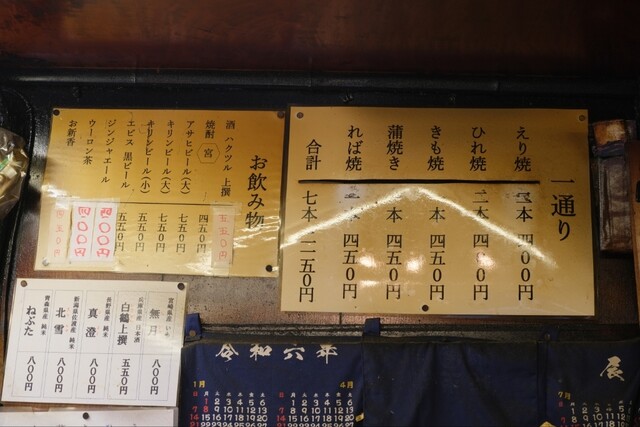 一通り
えり焼 本 四〇〇円
ひれ焼 二本 四五〇円
きも焼 一本 四五〇円
蒲焼き 一本 四五〇円
れば焼 一本 四五〇円
合計 七本 二二五〇円
お飲み物
酒 ハクツル 上撰 五五〇円
焼酎 宮 四五〇円
アサヒビール(大) 七五〇円
キリンビール(大) 七五〇円
キリンビール(小) 五五〇円
エビス 黒ビール 五五〇円
ジンジャエール 四〇〇円
ウーロン茶 四〇〇円
お新香 〇円
宮崎県産 いも
無月 八〇〇円
兵庫県産 日本酒
白鶴上撰 五五〇円
長野県産 純米
真澄 八〇〇円
新潟県佐渡産 純米
北雪 八〇〇円
青森県産 純米
ねぶた 八〇〇円
令和六年
辰
1月
4月
7月